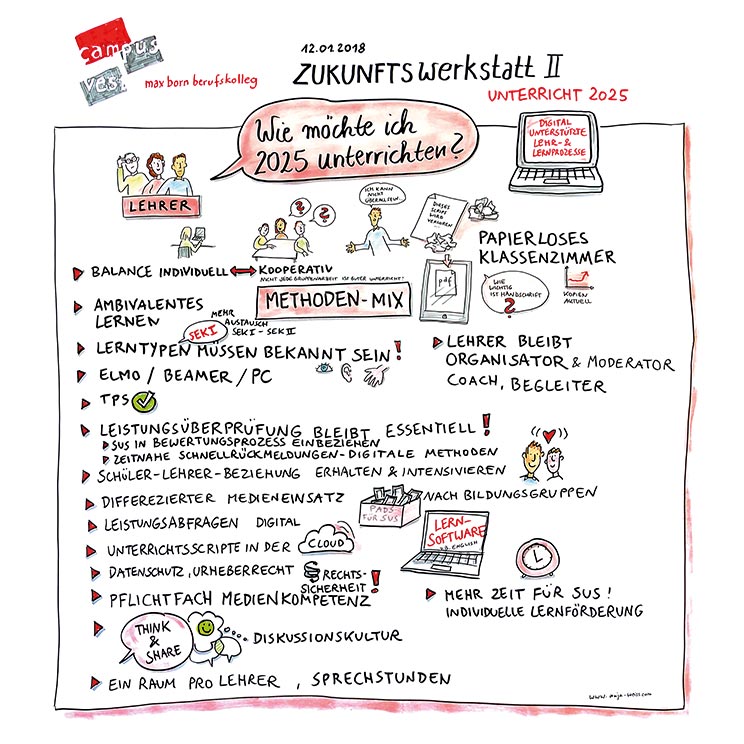 campus
vest
max born berufskolleg
12.01.2018
ZUKUNFTSWERKSTATT II
UNTERRICHT 2025
Wie möchte ich
2025 unterrichten?
DIGITAL
UNTERSTÜTZTE
LEHR- &
LERNPROZESSE
LEHRER
ICH KANN
NICHT
ÜBERALL SEIN...
DIESES
SCRIPT
WIRD
VERLOREN
PAPIERLOSES
KLASSENZIMMER
pdf
WIE
WICHTIG
IST HANDSCHRIFT
?
KOPIEN
AKTUELL
BALANCE INDIVIDUELL ↔ KOOPERATIV
NICHT JEDE GRUPPENARBEIT IST GUTER UNTERRICHT!
METHODEN-MIX
AMBIVALENTES
LERNEN
MEHR
AUSTAUSCH
SEK I - SEK II
SEK I
LERNTYPEN MÜSSEN BEKANNT SEIN!
ELMO / BEAMER / PC
TPS
LEHRER BLEIBT
ORGANISATOR & MODERATOR
COACH, BEGLEITER
LEISTUNGSÜBERPRÜFUNG BLEIBT ESSENTIELL!
SUS IN BEWERTUNGSPROZESS EINBEZIEHEN
ZEITNAHE SCHNELLRÜCKMELDUNGEN-DIGITALE METHODEN
SCHÜLER-LEHRER-BEZIEHUNG ERHALTEN & INTENSIVIEREN
DIFFEREZIERTER MEDIENEINSATZ
PADS
FÜR SUS
NACH BILDUNGSGRUPPEN
LEISTUNGSABFRAGEN DIGITAL
UNTERRICHTSSCRIPTE IN DER CLOUD
LERN-
SOFTWARE
Z.B. ENGLISH
DATENSCHUTZ, URHEBERRECHT § RECHTS-
SICHERHEIT!
PFLICHTFACH MEDIENKOMPETENZ
MEHR ZEIT FÜR SUS!
INDIVIDUELLE LERNFÖRDERUNG
THINK
&
SHARE
DISKUSSIONSKULTUR
EIN RAUM PRO LEHRER, SPRECHSTUNDEN